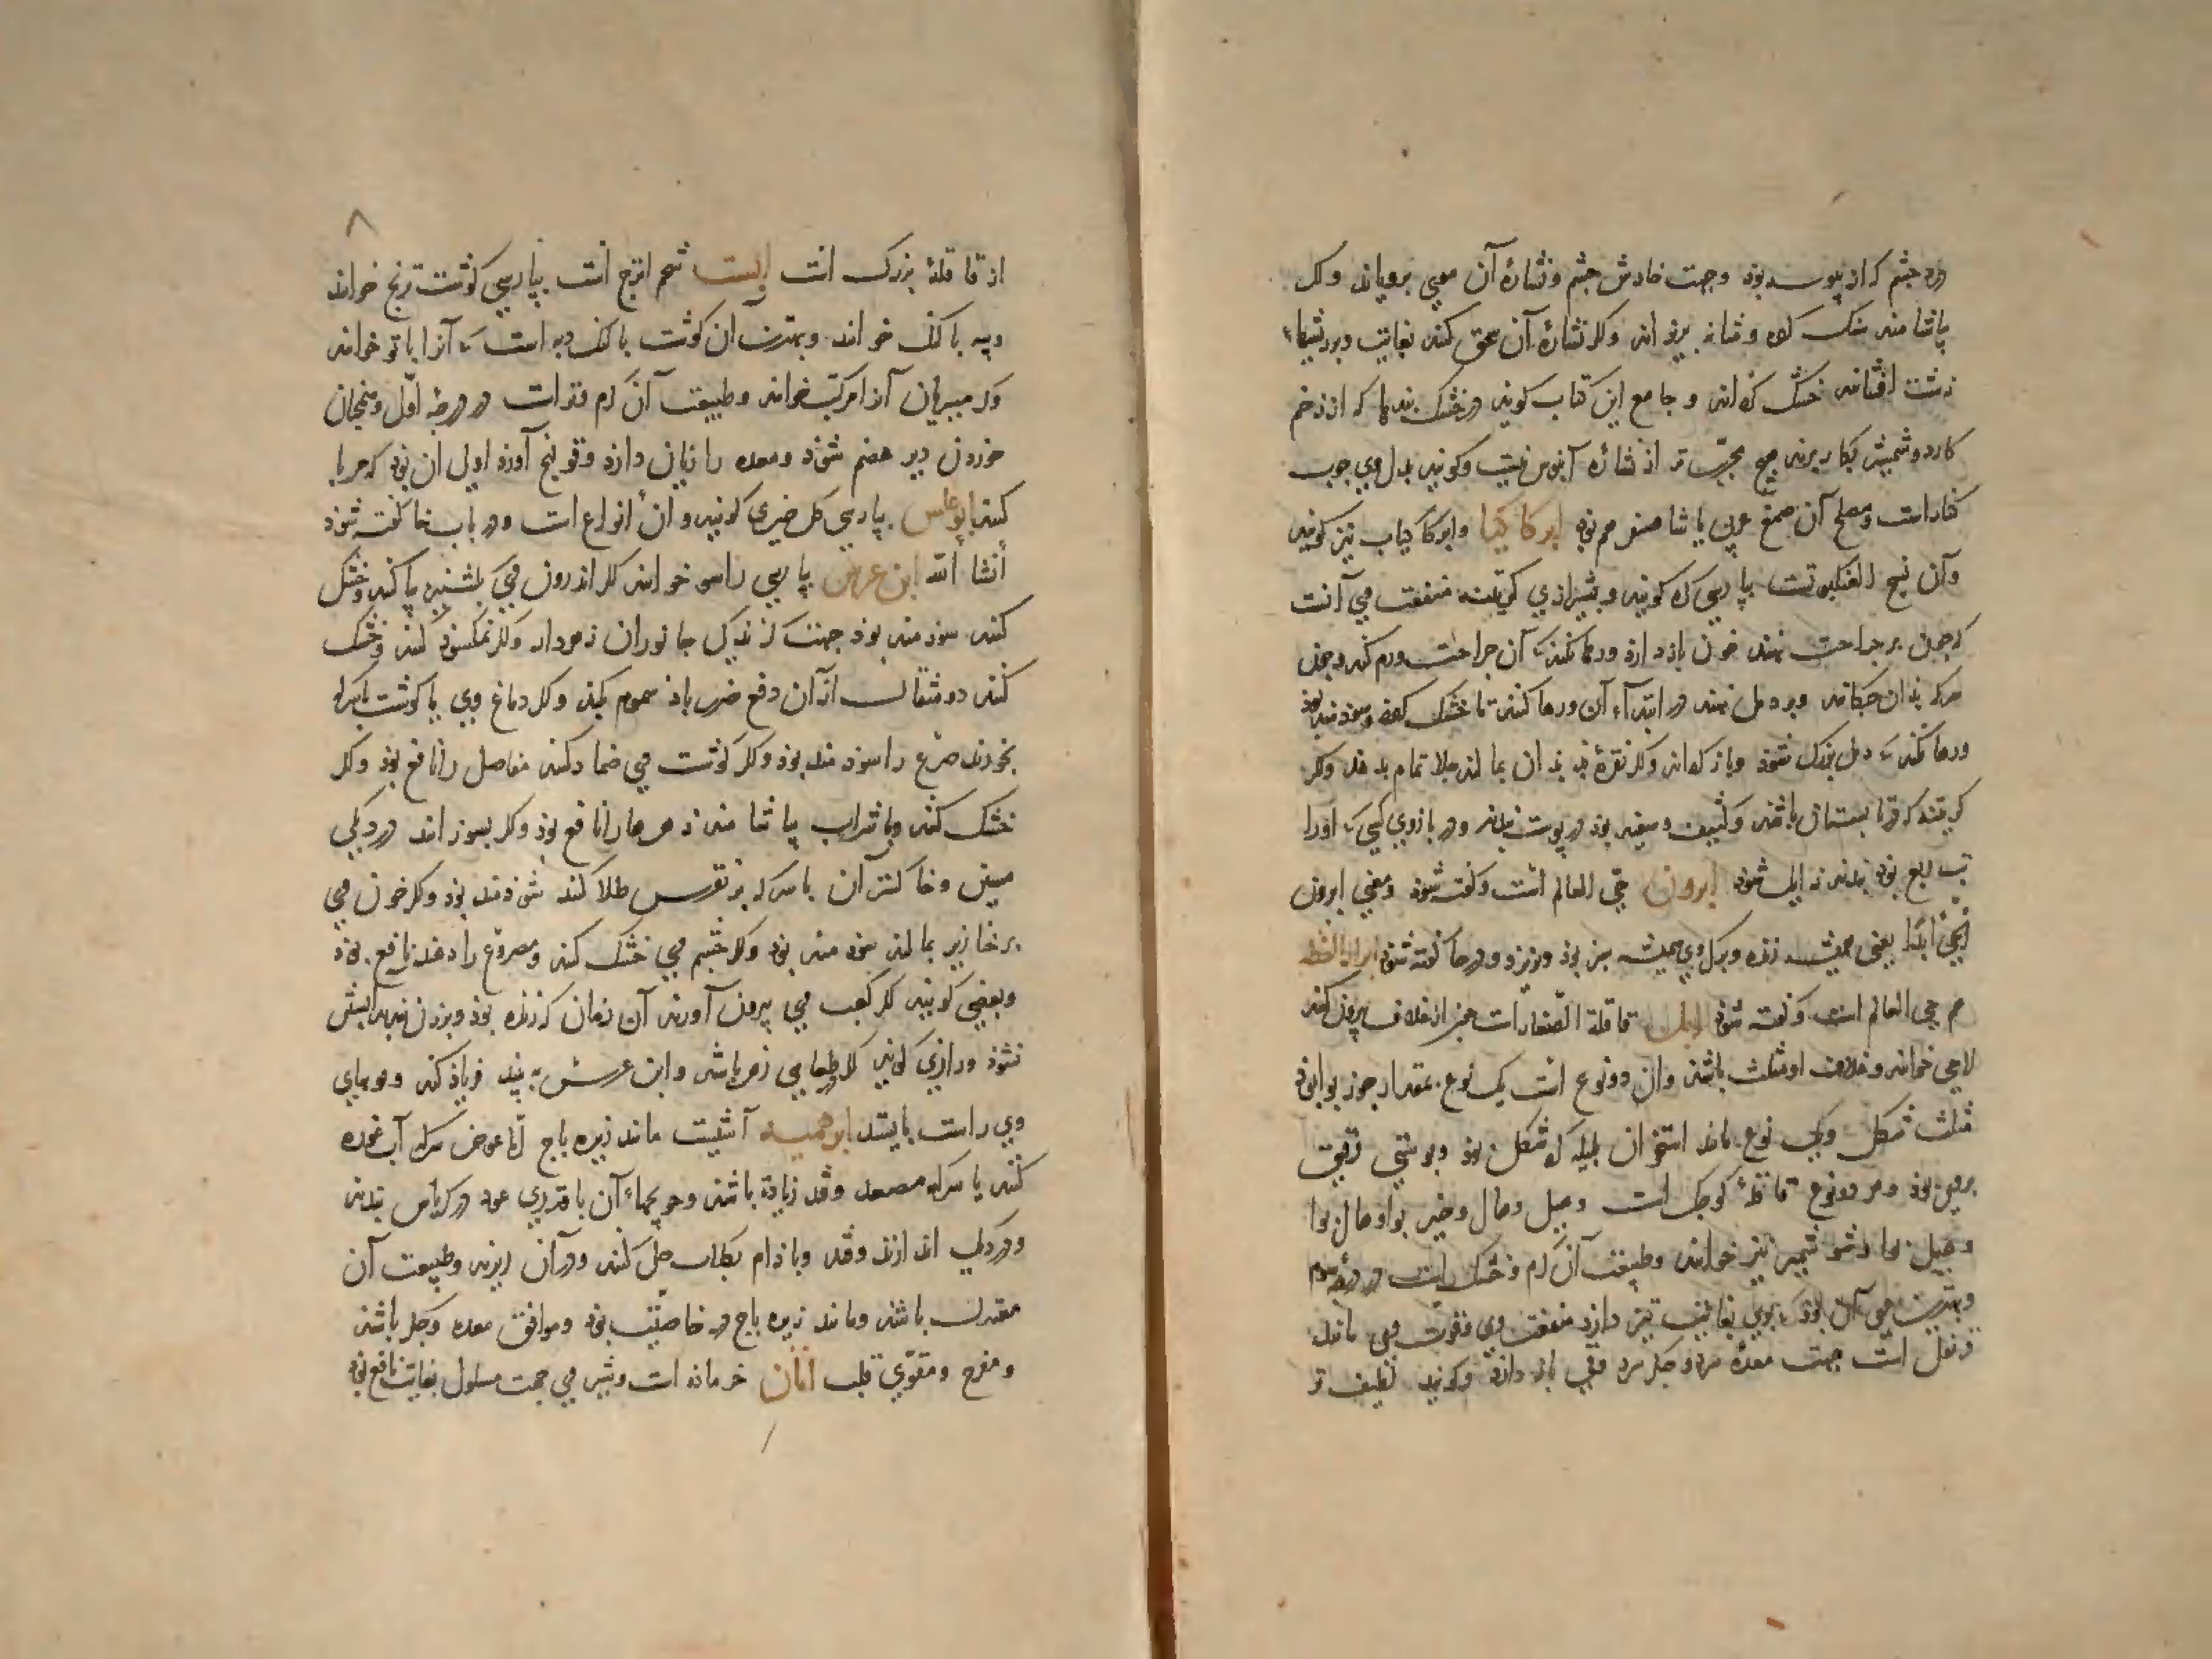 درد چشم که از پیوسه بود و جهت خارش چشم و نشاره آن موی برویاند و اگر
بیاشامند سنگ گرده و مثانه بریزاند و اگر نشاره آن سحق کنند بغایت و بر ریشهاء
زشت افشانند خشک گرداند و جامع این کتاب گوید در خشک بندها که از زخم
کارد و شمشیر بکار برند هیچ مجرب تر از نشاره آبنوس نیست و گویند بدل وی چوب
کنار است و مصلح آن صمغ عربی یا شاهسفرم بود ابرکاکیا و ابرکاکیاب نیز گویند
و آن نسج العنکبوتست بپارسی کره گویند و بشیرازی منفعت وی آنست
که چون بر جراحت نهند خون باز دارد و رها نکند که آن جراحت ورم کند و چون
سرکه بدان چکانند و بر دمل نهند در ابتداء آن و رها کنند تا خشک گردد سودمند بود
و رها نکند که دمل بزرگ شود و باز گرداند و اگر نقره بدان بمالند جلا تمام بدهد و اگر
کرتنه که در تابستان بافند و کثیف و سفید بود در پوست و در بازوی کسی که او را
تب ربع بود بندند زایل شود ابرون حی العالم است و گفته شود و معنی ابرون
یحیی ابدا یعنی همیشه زنده و برگ وی همیشه سبز بود و نریزد و در حا گفته شود
هم حی العالم است و گفته شود ابل قاقلة الصغار است چون از غلاف بیرون کنند
لاچی خوانند و غلاف او مثلث باشد و آن دو نوع است یک نوع بمقدار جوز بوا بود
مثلث شکل و یک نوع مانند استخوان بلیله گرد شکل بود و پوستی رقیق
بروی بود و هر دو نوع قاقله کوچک است و هیل و هال و خیر بوا و هال بوا
و هیل بوا و شوشمیر نیز خوانند و طبیعت آن گرم و خشک است در درجه سوم
و بهترین وی آن بود که بوی بغایت تیز دارد منفعت وی و قوت وی مانند
قرنفل است جهت معده سرد و جگر سرد و قی باز دارد و گویند لطیف تر
۸
از قاقله بزرگ است ابست شحم اترج است بپارسی گوشت ترنج خوانند
و پیه باکنک خوانند و بهترین آن گوشت باکنک دیه است که آنرا باتو خوانند
و در میبران آنرا مرکب خوانند و طبیعت آن گرم و تر است در درجه اول و همچنان
خوردن دیر هضم شود و معده را زیان دارد و قولنج آورد اولی آن بود که مربا
کنند ابوعلس بپارسی گل خیری گویند و آن انواع است و در باب خا گفته شود
انشا الله ابن عرس بپارسی راسو خوانند اگر اندرون وی بشویند پاک کنند و خشک
کنند سودمند بود جهت گزندگی جانوران زهردار و اگر نمکسود کنند و خشک
کنند دو مثقال از آن دفع ضرر باد سموم بکند و اگر دماغ وی یا گوشت باسرکه
بخورند صرع را سودمند بود و اگر گوشت وی ضماد کنند مفاصل را نافع بود و اگر
خشک کنند و با شراب بیاشامند زهرها را نافع بود و اگر بسوزانند در دیگی
مسین و خاکستر آن با سرکه بر نقرس طلا کنند سودمند بود و اگر خون وی
بر خنازیر بمالند سودمند بود و اگر چشم وی خشک کنند و مصروع را دهند نافع بود
و بعضی گویند اگر کعب وی بیرون آورند آن زمان که زنده بود و بر زن بندند آبستن
نشود و رازی گوید اگر طعامی زهر باشد و ابن عرس ببیند فریاد کند و موبهای
وی راست بایستد ابرهمیه آشیست مانند زیره باج اما عوض سرکه آب غوره
کنند یا سرکه مصعد و قند زیاده باشد و حویجهاء آن با قدری عود در کرباس بندند
و در دیگ اندازند و قند و بادام بگلاب حل کنند و در آن ریزند و طبیعت آن
معتدل باشد و مانند زیره باج در خاصیت بود و موافق معده و جگر باشد
و مفرح و مقوی قلب اتان خر ماده است و شیر وی جهت مسلول بغایت نافع بود